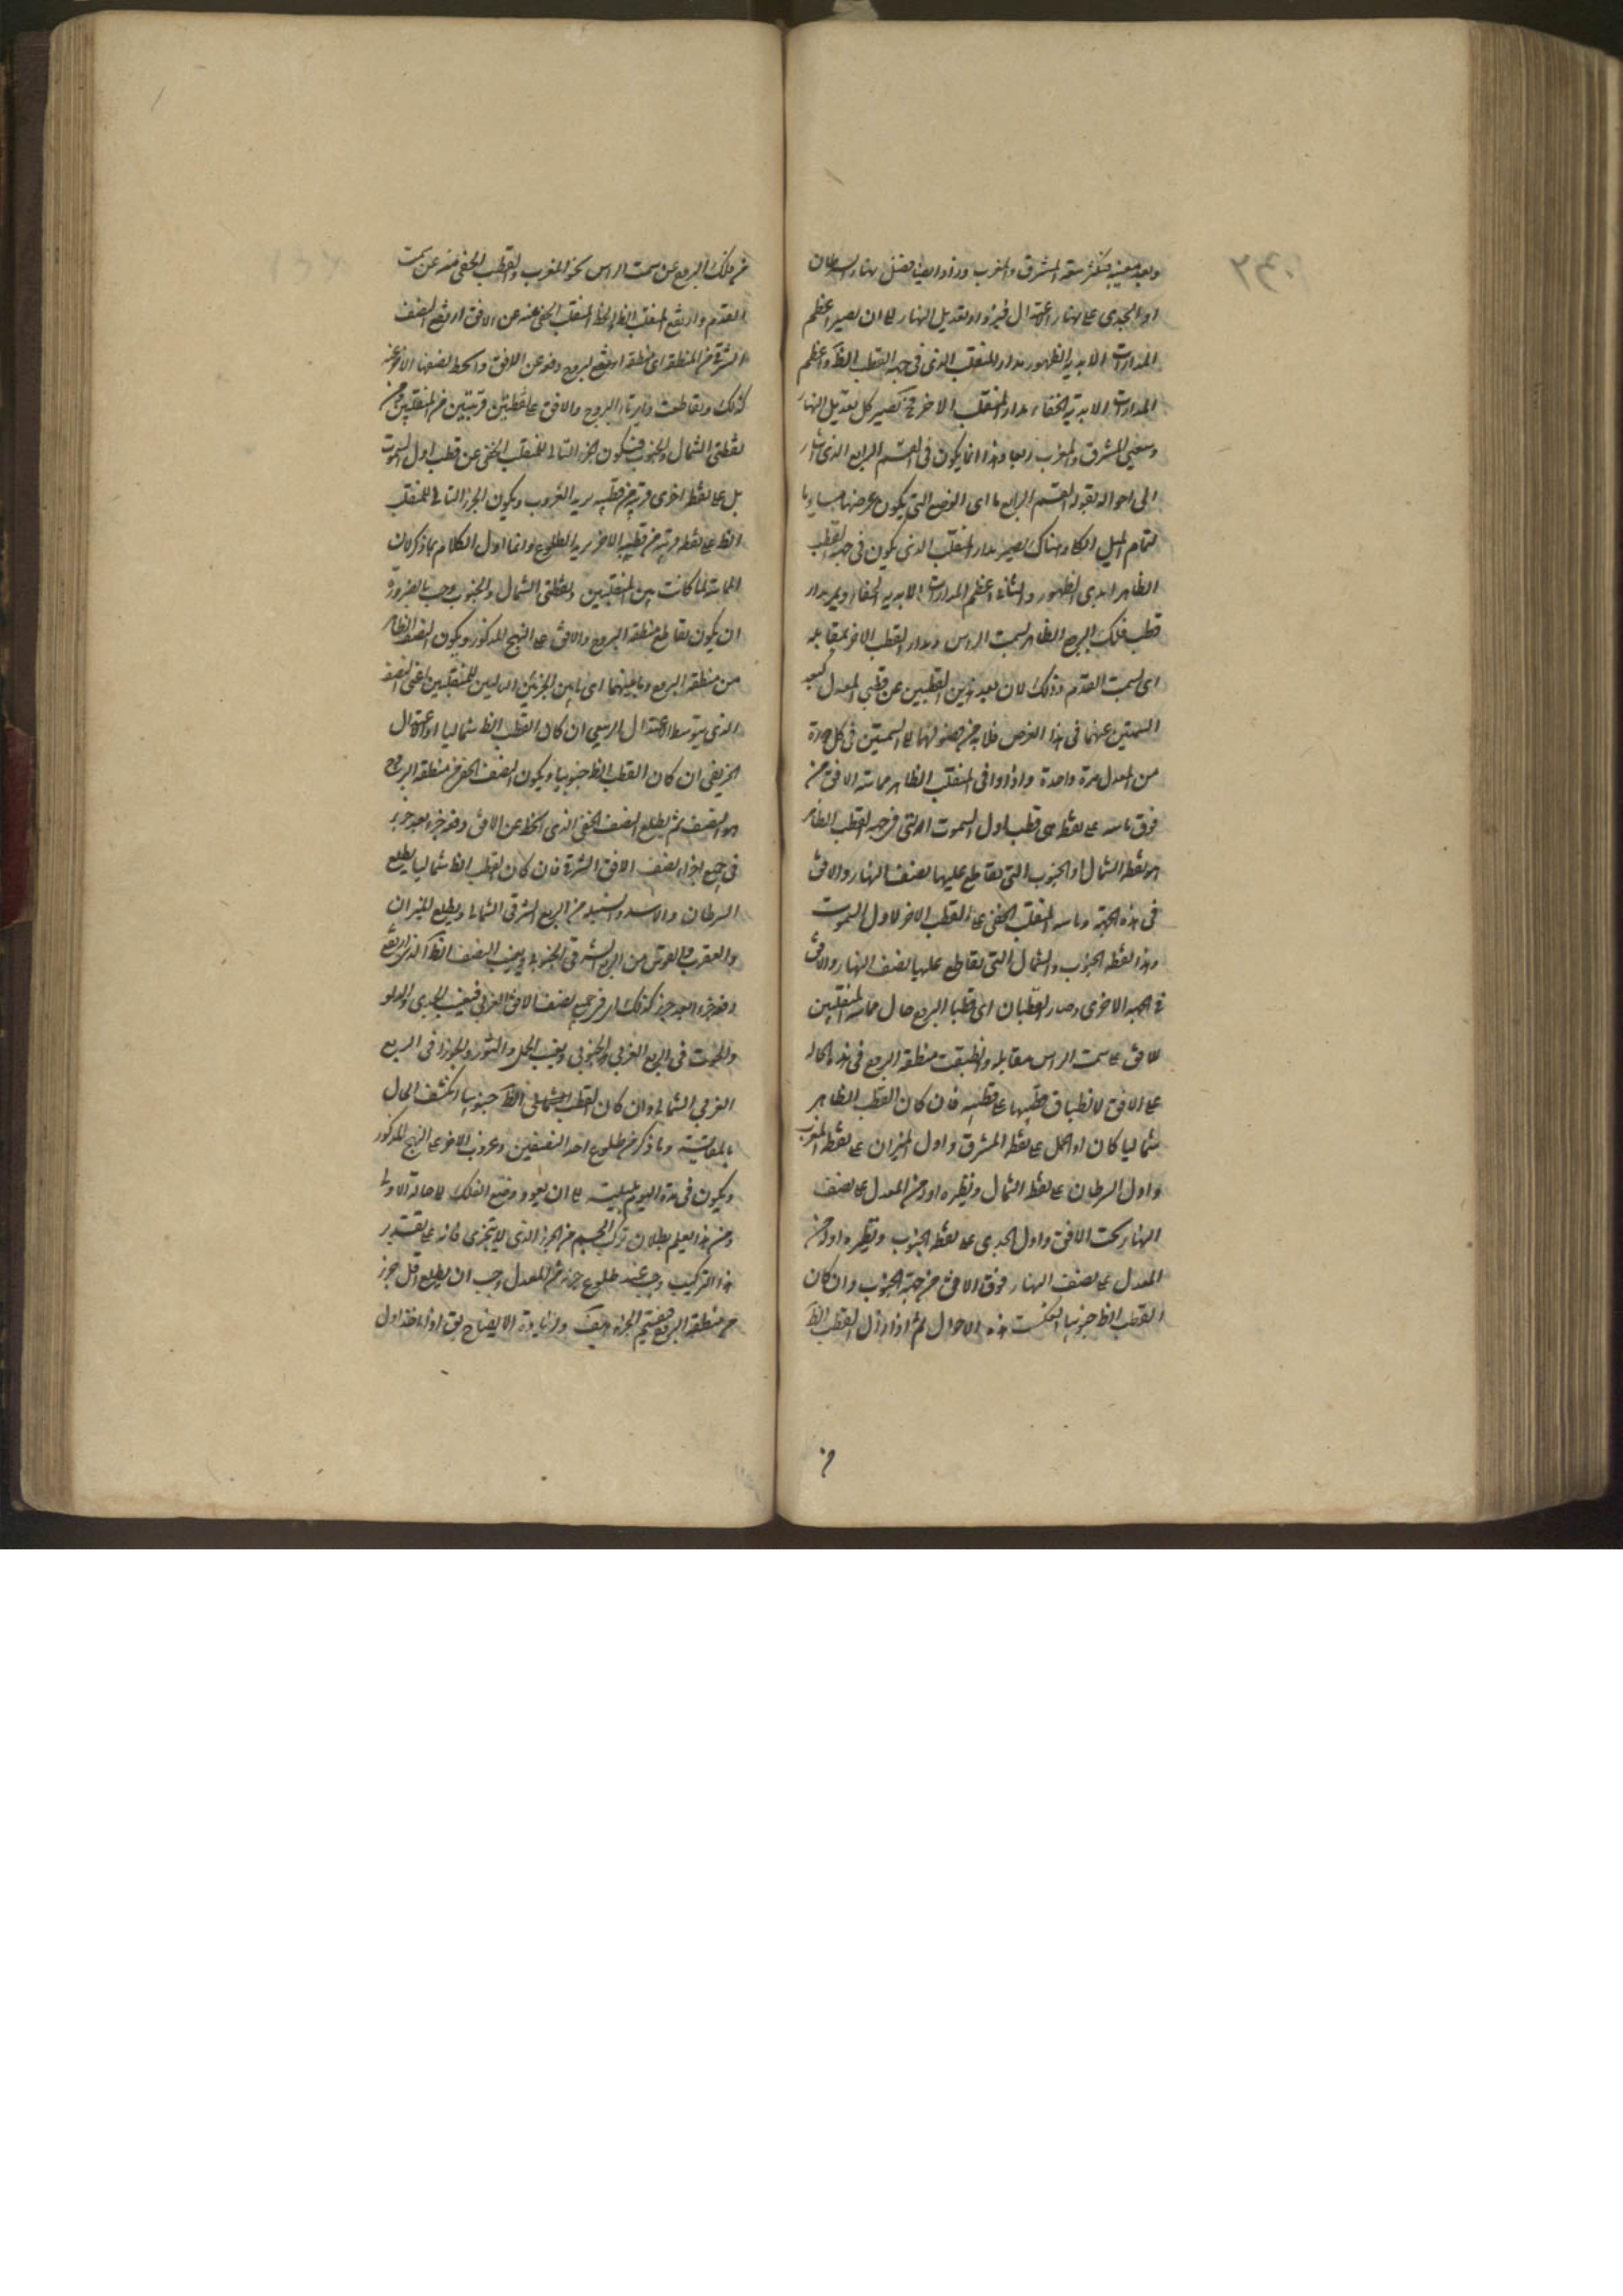 وبعد معين فيكثر سعة المشرق والمغرب ويزداد ايضا فضل نهار السرطان
او الجدى على نهار الاعتدال فيزداد تعديل النهار الى ان يصير اعظم
المدارات الابدية الظهور مدار المنقلب الذى فى جهة القطب الظ واعظم
المدارات الابدية الخفاء مدار المنقلب الاخر فح يصير كل تعديل النهار
وسعتى المشرق والمغرب ربعا وهذا انما يكون فى القسم الرابع الذى اشار
الى احواله بقوله القسم الرابع ما اى المواضع التى يكون عرضها مساويا
لتمام الميل الكلى وهناك يصير مدار المنقلب الذى يكون فى جهة القطب
الظاهر ابدى الظهور والثانى اعظم المدارات الابدية الخفاء ويمر مدار
قطب فلك البروج الظاهر بسمت الراس ومدار القطب الاخر بمقابله
اى بسمت القدم وذلك لان بعد هذين القطبين عن قطبى المعدل كبعد
السمتين عنهما فى هذا العرض فلا بد من وصولهما الى السمتين فى كل دورة
من المعدل مرة واحدة واذا وافى المنقلب الظاهر مماسة الافق من
فوق ماسه على نقطة هى قطب اول السموت التى فى جهة القطب الظاهر
هو نقطة الشمال او الجنوب التى تقاطع عليها نصف النهار والافق
فى هذه الجهة وماسه المنقلب الخفى على القطب الاخر لاول السموت
وهذا نقطة الجنوب والشمال التى تقاطع عليها نصف النهار والافق
فى الجهة الاخرى وصار القطبان اى قطبا البروج حال مماسة المنقلبين
للافق على سمت الراس ومقابله وانطبقت منطقة البروج فى هذه الحالة
على الافق لانطباق قطبيها على قطبيه فان كان القطب الظاهر
شماليا كان اول الحمل على نقطة المشرق واول الميزان على نقطة المغرب
واول السرطان على نقطة الشمال ونظيره اول من المعدل على نصف
النهار تحت الافق واول الجدى على نقطة الجنوب ونظيره اول من
المعدل على نصف النهار فوق الافق من جهة الجنوب وان كان
القطب الظ جنوبيا انعكست هذه الاحوال ثم اذا زال القطب الظ
من فلك البروج عن سمت الراس نحو المغرب والقطب الخفى منه عن سمت
القدم وارتفع المنقلب الظ وانحط المنقلب الخفى عنه عن الافق ارتفع النصف
الشرقى من المنطقة اى منطقة البروج دفعة عن الافق وانحط نصفها الاخر عنه
كذلك وتقاطعت دايرتا البروج والافق على نقطتين قريبتين من المنقلبين ومن
نقطتى الشمال والجنوب فيكون الجزء التالى للمنقلب الخفى عن قطب اول السموت
بل على نقطة اخرى قريبة من قطبه يريد الغروب ويكون الجزء التالى للمنقلب
الظ على نقطة قريبة من قطبه الاخر يريد الطلوع وانما اول الكلام بما ذكر لان
المماسة لما كانت بين المنقلبين ونقطتى الشمال والجنوب وجب بالضرورة
ان يكون تقاطع منطقة البروج والافق على النهج المذكور ويكون النصف الظاهر
من منطقة البروج وما بينهما اى ما بين الجزئين التاليين للمنقلبين اعنى النصف
الذى يتوسط الاعتدال الربيعى ان كان القطب الظ شماليا او الاعتدال
الخريفى ان كان القطب الظ جنوبيا ويكون النصف الخفى من منطقة البروج
هو النصف ثم يطلع النصف الخفى الذى انحط عن الافق دفعة جزء بعد جزء
فى جميع اجزاء نصف الافق الشرقى فان كان القطب الظ شماليا يطلع
السرطان والاسد والسنبلة من الربع الشرقى الشمالى ويطلع الميزان
والعقرب والقوس من الربع الشرقى الجنوبى ويغيب النصف الظ الذى ارتفع
دفعة جزء بعد جزء كذلك اى فى جميع نصف الافق الغربى فيغيب الجدى والدلو
والحوت فى الربع الغربى والجنوبى ويغيب الحمل والثور والجوزا فى الربع
الغربى الشمالى وان كان القطب الشمالى الظ جنوبيا انكشف الحال
بالمقايسة وما ذكر من طلوع احد النصفين وغروب الاخر على النهج المذكور
ويكون فى مدة اليوم بليلته الى ان يعود وضع الفلك الى حاله الاولى
ومن هذا يعلم بطلان تركب الجسم من الجزء الذى لا يتجزى فانه على تقدير
هذا التركيب وجب عند طلوع جزء من المعدل وجب ان يطلع اقل جزء
من منطقة البروج فينقسم الجزء هف ولزيادة الايضاح نقول اذا اخذ اول